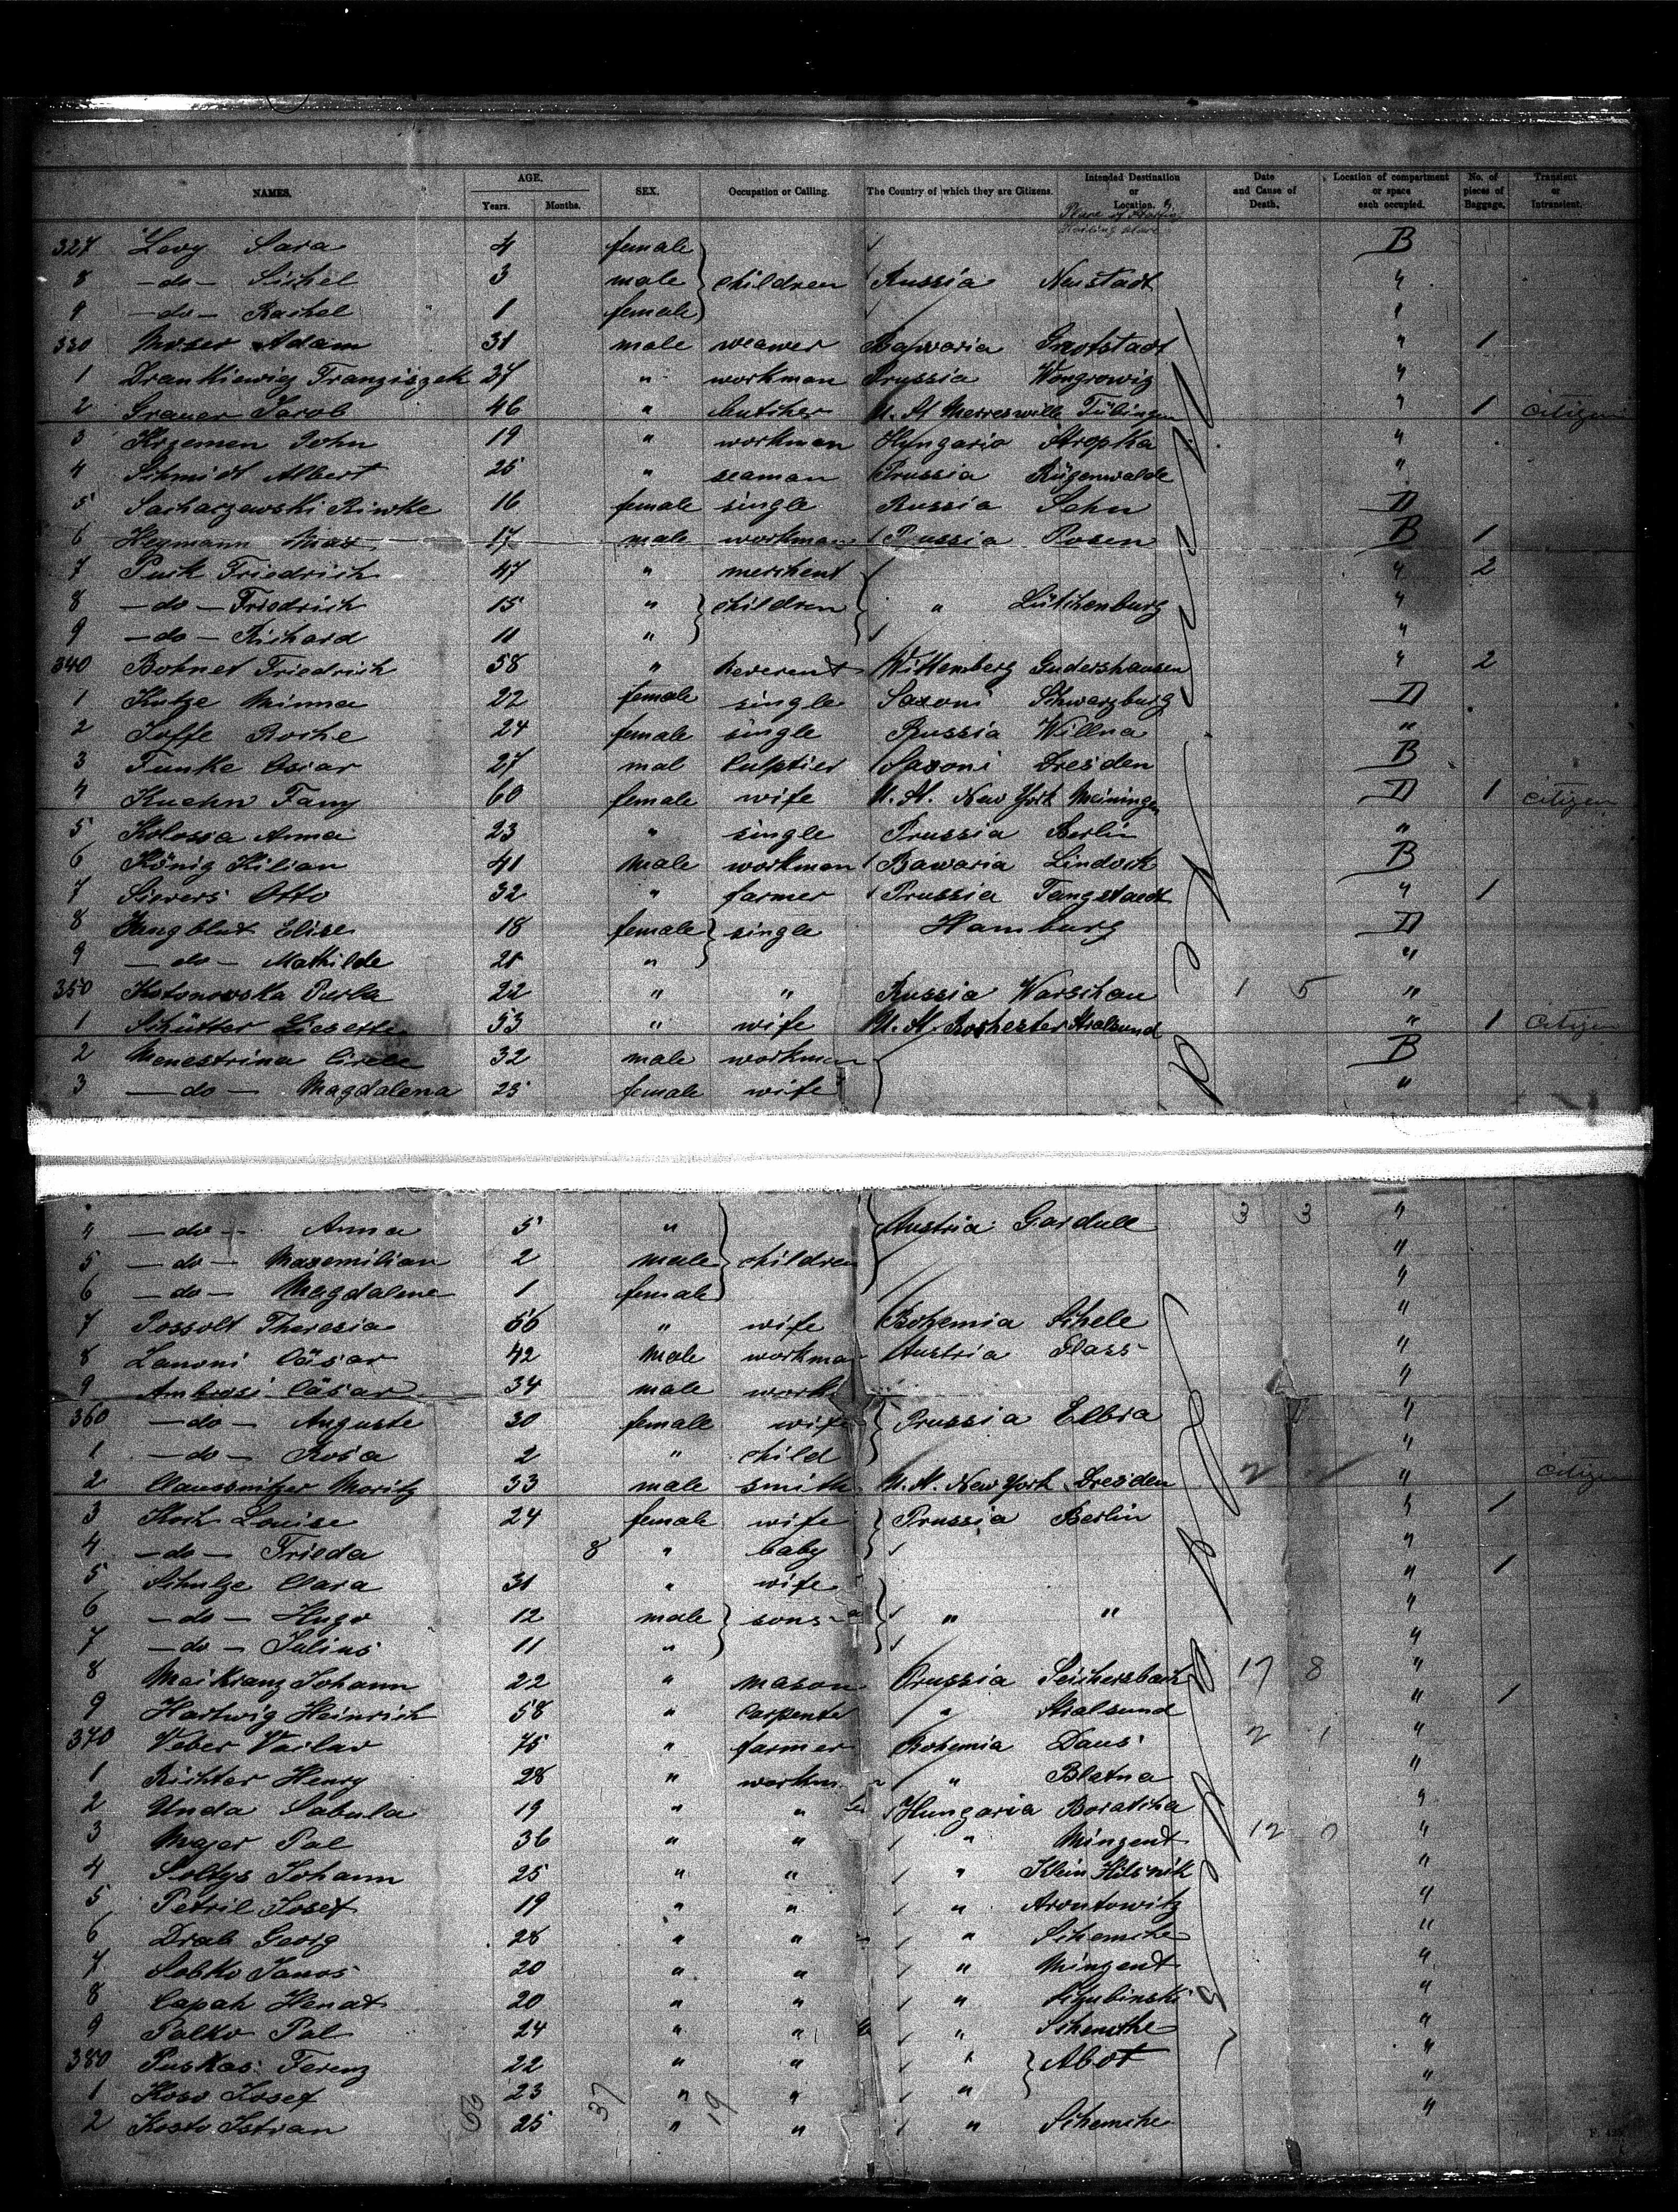 NAMES. AGE. Years. Months. SEX. Occupation or Calling. The Country of which they are Citizens. Intended Destination or Location. Date and Cause of Death. Location of compartment or space each occupied. No. of pieces of Baggage. Transient or Intransient.
Place of
327 Levy Sara 4 female B
8 -do- Sichel 3 male children Russia Neustadt "
9 -do- Rachel 1 female "
330 Moser Adam 31 male weawer Bawaria " 1
1 Drankiewicz Franziszek 27 " workman Prussia Wongrowiz "
2 Grauer Jacob 46 " butcher U. St. Tübingen " 1 citizen
3 Krzemen John 19 " workman Hungaria Stropka "
4 Schmidt Albert 25 " seaman Prussia Rügenwalde "
5 Sacharzewski Riwke 16 female single Russia D
6 Heymann Max 17 male workman Prussia Posen B 1
7 Friedrich 47 " merchent " 2
8 -do- Friedrich 15 " children " Lütchenburg "
9 -do- Richard 11 " "
340 Bohnet Friedrich 58 " Reverent Wittemberg Gudershausen " 2
1 Kutze Minna 22 female single Saxoni Schwarzburg D
2 Joffe Roche 24 female single Russia Willna "
3 Funke Oscar 27 mal Saxoni Dresden B
4 Kuehn Fany 60 female wife U. St. New York Meiningen D 1 citizen
5 Kolossa Anna 23 " single Prussia Berlin "
6 König Kilian 41 male workman Bawaria B
7 Sievers Otto 32 " farmer Prussia Tangstaedt " 1
8 Jungblut Elise 18 female single Hamburg D
9 -do- Mathilde 21 " "
350 Kotonowska Perla 22 " " Russia Warschau 1 5 "
1 Schütter Liesette 53 " wife U. St. Rochester Stralsund " 1 citizen
2 Menestrina 32 male workman B
3 -do- Magdalena 25 female wife "
4 -do- Anna 5 " Austria Gardull 3 3 "
5 -do- Maxemilian 2 male children "
6 -do- Magdalene 1 female "
7 Possolt Theresia 56 " wife Bohemia Schele "
8 Zanoni Cäsar 42 male workman Austria Flass "
9 Ambrosi Cäsar 34 male work "
360 -do- Auguste 30 female wife Prussia Elbia "
1 -do- Rosa 2 " child "
2 Claussnitzer Moritz 33 male smith U. St. New York Dresden 2 " citizen
3 Koch Louise 24 female wife Prussia Berlin " 1
4 -do- Frieda 8 " baby "
5 Schulze Clara 31 " wife " 1
6 -do- Hugo 12 male sons " " "
7 -do- Julius 11 " "
8 Maikranz Johann 22 " mason Prussia Seichersbach 17 8 "
9 Hartwig Heinrich 58 " carpenter " Stralsund " 1
370 Veber Vaclav 75 " farmer Bohemia Daus 2 1 "
1 Richter Henry 28 " workm " Blatna "
2 Unda Sabula 19 " " Hungaria Boratcha "
3 Majer Pal 36 " " " Mingent 12 0 "
4 Soltys Johann 25 " " " Klein "
5 Petril Josef 19 " " " Arontowitz "
6 Drab Georg 28 " " " Schemche "
7 Sobko Janos 20 " " " Mingent "
8 Capah Henat 20 " " " "
9 Palko Pal 24 " " " Schemche "
380 Puskas Ferenz 22 " " " Abot "
1 Koso Josef 23 " " " "
2 Kosto Istvan 25 " " " Schemche "
37 19